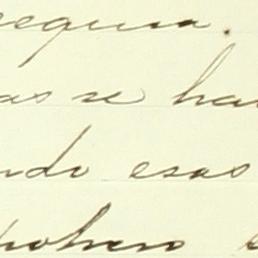 segura.
as se ha
ndo esas
potrero